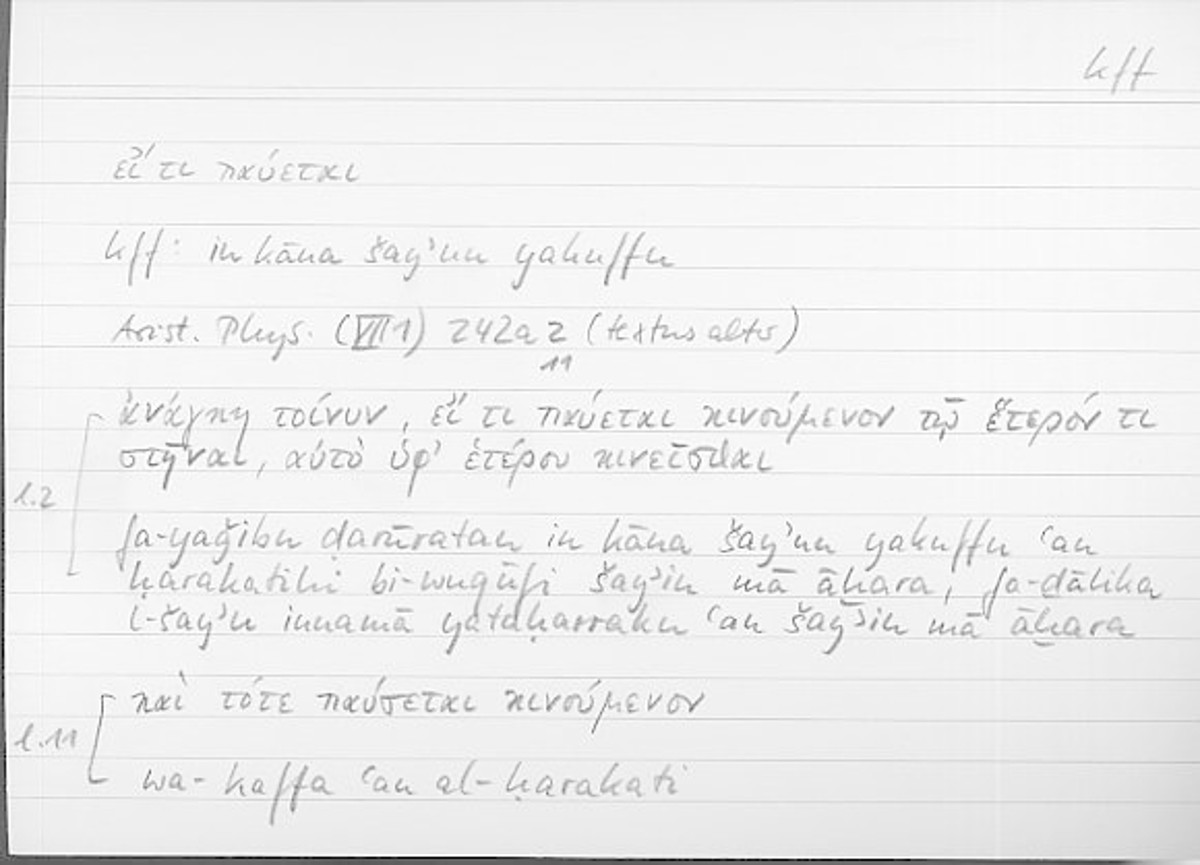 kff
εἴ τι παύεται
kff: in kāna šay'un yakuffu
Arist. Phys. (VII 1) 242a 2 (textus alter)
11
ἀνάγκη τοίνυν, εἴ τι παύεται κινούμενον τῷ ἕτερόν τι
στῆναι, αὐτὸ ὑφ' ἑτέρου κινεῖσθαι
l.2
fa-yaǧibu ḍarūratan in kāna šay'un yakuffu ʿan
ḥarakatihi bi-wuqūfi šay'in mā āḫara, fa-ḏālika
l-šay'u innamā yataḥarraku ʿan šay'in mā āḫara
καὶ τότε παύσεται κινούμενον
l.11
wa-kaffa ʿan al-ḥarakati